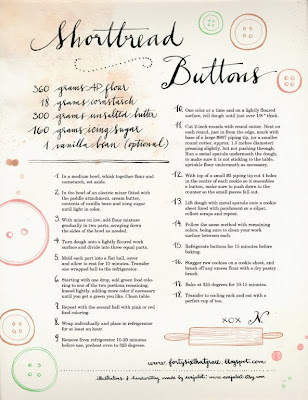 Shortbread
Buttons
360 grams AP flour
18 grams cornstarch
300 grams unsalted butter
160 grams icing sugar
1 vanilla bean (optional)
1. In a medium bowl, whisk together flour and
cornstarch, set aside.
2. In the bowl of an electric mixer fitted with
the paddle attachment, cream butter,
contents of vanilla bean and icing sugar
until light in color.
3. With mixer on low, add flour mixture
gradually in two parts, scraping down
the sides of the bowl as needed.
4. Turn dough onto a lightly floured work
surface and divide into three equal parts.
5. Mold each part into a flat ball, cover
and allow to rest for 10 minutes. Transfer
one wrapped ball to the refrigerator.
6. Starting with one drop, add green food color-
ing to one of the two portions remaining,
knead lightly, adding more color if necessary
until you get a green you like. Clean table.
7. Repeat with the second ball with pink or red
food coloring.
8. Wrap individually and place in refrigerator
for at least an hour.
9. Remove from refrigerator 10-20 minutes
before use, preheat oven to 325 degrees.
10. One color at a time and on a lightly floured
surface, roll dough until just over 1/8" thick.
11. Cut 2-inch rounds with round cutter. Next on
each round, just in from the edge, mark with
base of a large #807 piping tip, (or a smaller
round cutter, approx. 1.5 inches diameter)
pressing slightly, but not pushing through.
Run a metal spatula underneath the dough,
to make sure it is not sticking to the table,
sprinkle flour underneath as necessary.
12. With top of a small #2 piping tip cut 4 holes
in the centre of each cookie so it resembles
a button, make sure to push down to the
counter so the small pieces fall out.
13. Lift dough with metal spatula onto a cookie
sheet lined with parchment or a silpat,
collect scraps and repeat.
14. Follow the same method with remaining
colors, being sure to clean your work
surface between each.
15. Refrigerate buttons for 15 minutes before
baking.
16. Stagger raw cookies on a cookie sheet, and
brush off any excess flour with a dry pastry
brush.
17. Bake at 325 degrees for 10-15 minutes.
18. Transfer to cooling rack and eat with a
perfect cup of tea.
xox N
www.fortysixthatgrace.blogspot.com
illustrations & handwriting made by